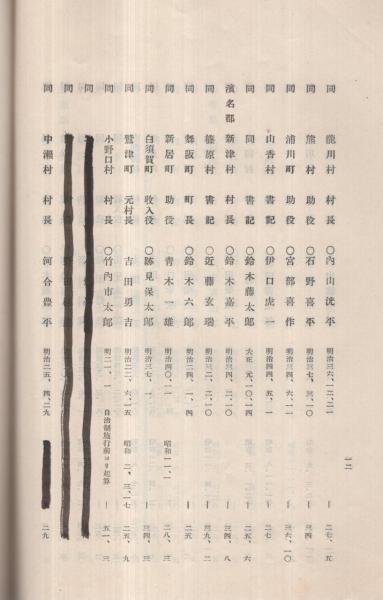 同 龍川村 村長 〇內山洸平 明治三六、一二、二一 ― 二七、一五
同 熊村 助役 〇石野喜平 明治三〇、三、 ― 三四、
同 浦川町 助役 〇宮部喜作 明治三四、六、一 ― 三六、一〇
同 山香村 書記 〇伊口虎一 明治四四、五、一 ― 二七、
同 同 書記 〇鈴木藤太郎 大正 元、一〇、四 ― 二五、六
濱名郡 新津村 村長 〇鈴木嘉平 明治三四、二、一〇 ― 三四、八
同 篠原村 書記 〇近藤玄瑞 明治三二、二、一〇 ― 三九、二
同 舞阪町 町長 〇鈴木六郎 明治二四、一、四 ― 二五、三
同 新居町 助役 青木一雄 明治四〇、一一 昭和一一、一 二八、三
同 白須賀町 收入役 〇跡見保太郎 明治三七、一 ― 三四、三
同 鷲津町 元村長 吉田勇吉 明治二二、六、一五 昭和 二、三、一七 二五、九
同 小野口村 村長 〇竹內市太郎 明二一、一 自治制施行前ヨリ起算 ― 五一、三
同
同 中瀨村 村長 〇河合豊平 明治二五、四、二九 二九
一二